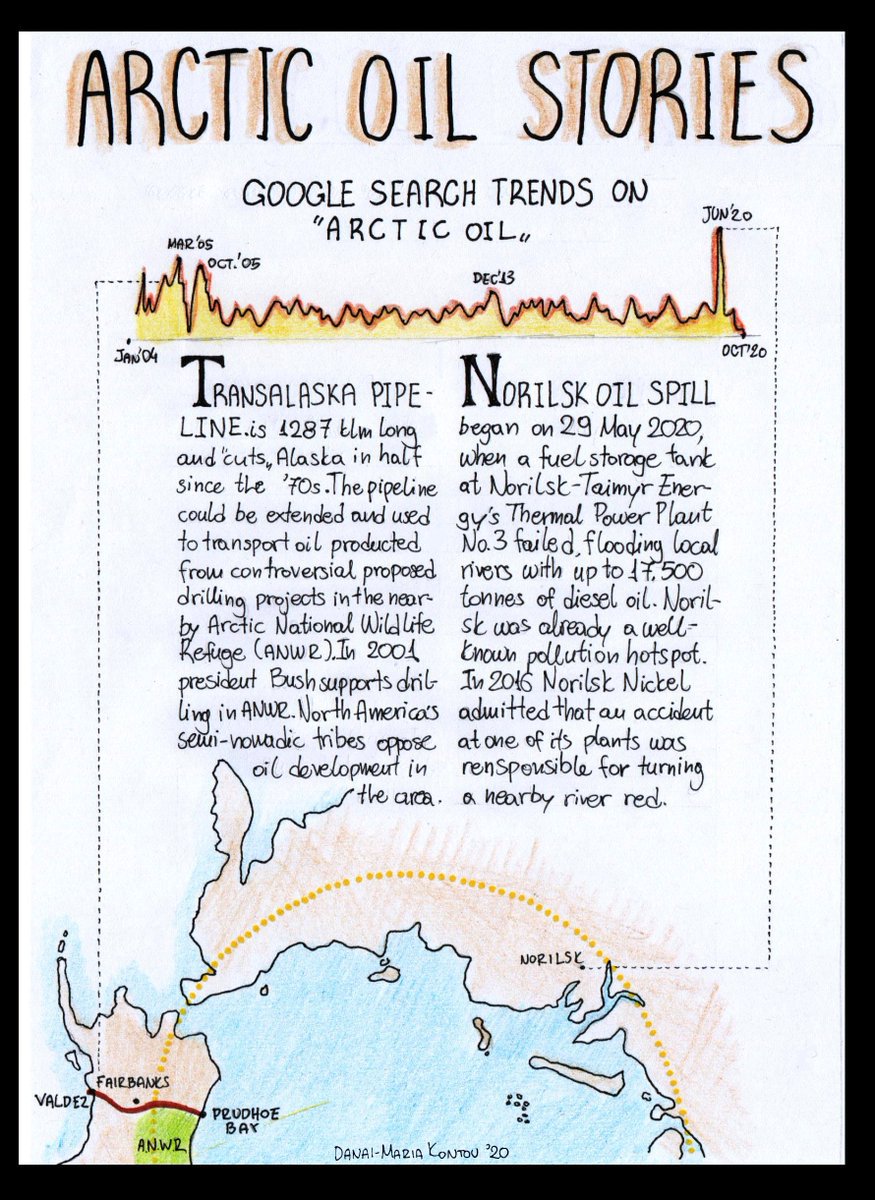 ARCTIC OIL STORIES
GOOGLE SEARCH TRENDS ON
"ARCTIC OIL„
JUN'20
MAR'05
OCT.'05
DEC'13
JAN'04
OCT'20
TRANSALASKA PIPE-
LINE.is 1287 klm long
and "cuts„ Alaska in half
since the '70s. The pipeline
could be extended and used
to transport oil producted
from controversial proposed
drilling projects in the near-
by Arctic National Wild Life
Refuge (ANWR). In 2001
president Bush supports dril-
ling in ANWR. North America's
semi-nomadic tribes oppose
oil development in
the area.
NORILSK OIL SPILL
began on 29 May 2020,
when a fuel storage tank
at Norilsk-Taimyr Ener-
gy's Thermal Power Plant
No.3 failed, flooding local
rivers with up to 17,500
tonnes of diesel oil. Noril-
sk was already a well-
known pollution hotspot.
In 2016 Norilsk Nickel
admitted that an accident
at one of its plants was
rensponsible for turning
a nearby river red.
NORILSK
FAIRBANKS
VALDEZ
PRUDHOE
BAY
A.N.W.R
DANAI-MARIA KONTOU '20